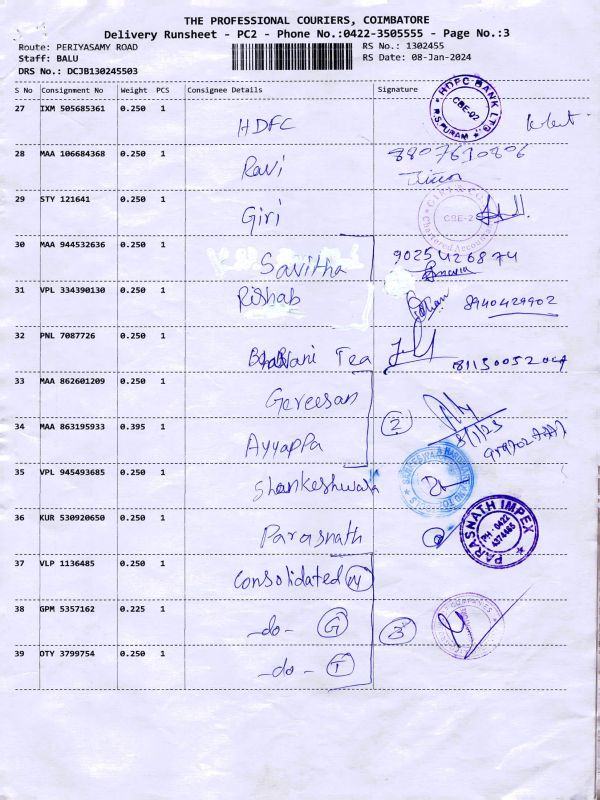 THE PROFESSIONAL COURIERS, COIMBATORE
Delivery Runsheet - PC2 - Phone No.:0422-3505555 - Page No.:3
Route: PERIYASAMY ROAD
RS No.: 1302455
Staff: BALU
RS Date: 08-Jan-2024
DRS No.: DCJB130245503
S No Consignment No Weight PCS Consignee Details Signature
27 IXM 505685361 0.250 1 HDFC
HDFC BANK LTD. CBE-02 R.S.PURAM
28 MAA 106684368 0.250 1 Ravi 8807610806
29 STY 121641 0.250 1 Giri
GIRI & CO CBE-2 Chartered Accountants
30 MAA 944532636 0.250 1 Savitha 9025426874
31 VPL 334390130 0.250 1 Rishab 8940429902
32 PNL 7087726 0.250 1 Tea 8115005204
33 MAA 862601209 0.250 1 Gereesan
2
34 MAA 863195933 0.395 1 Ayyappa
35 VPL 945493685 0.250 1 Shankeshwara
36 KUR 530920650 0.250 1 Parasnath
PARASNATH IMPEX PH-0422 4374465
37 VLP 1136485 0.250 1 Consolidated
38 GPM 5357162 0.225 1 -do- G 3
39 OTY 3799754 0.250 1 -do- T